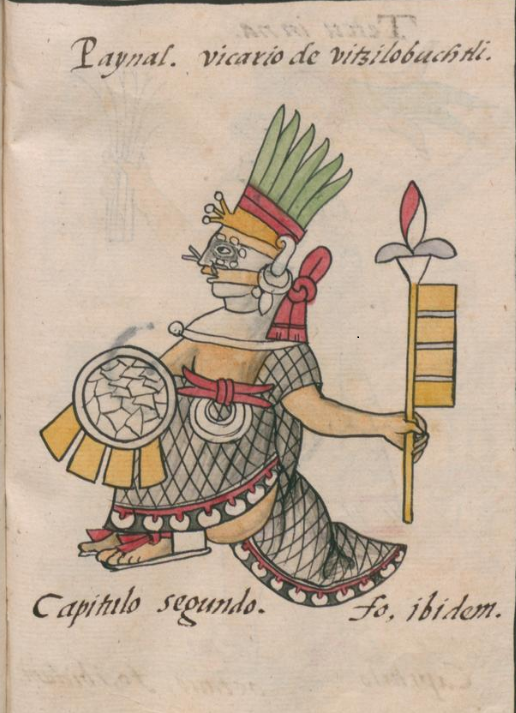 Paynal. vicario de vitzilobuchtli.
Capitulo segundo. fo, ibidem.